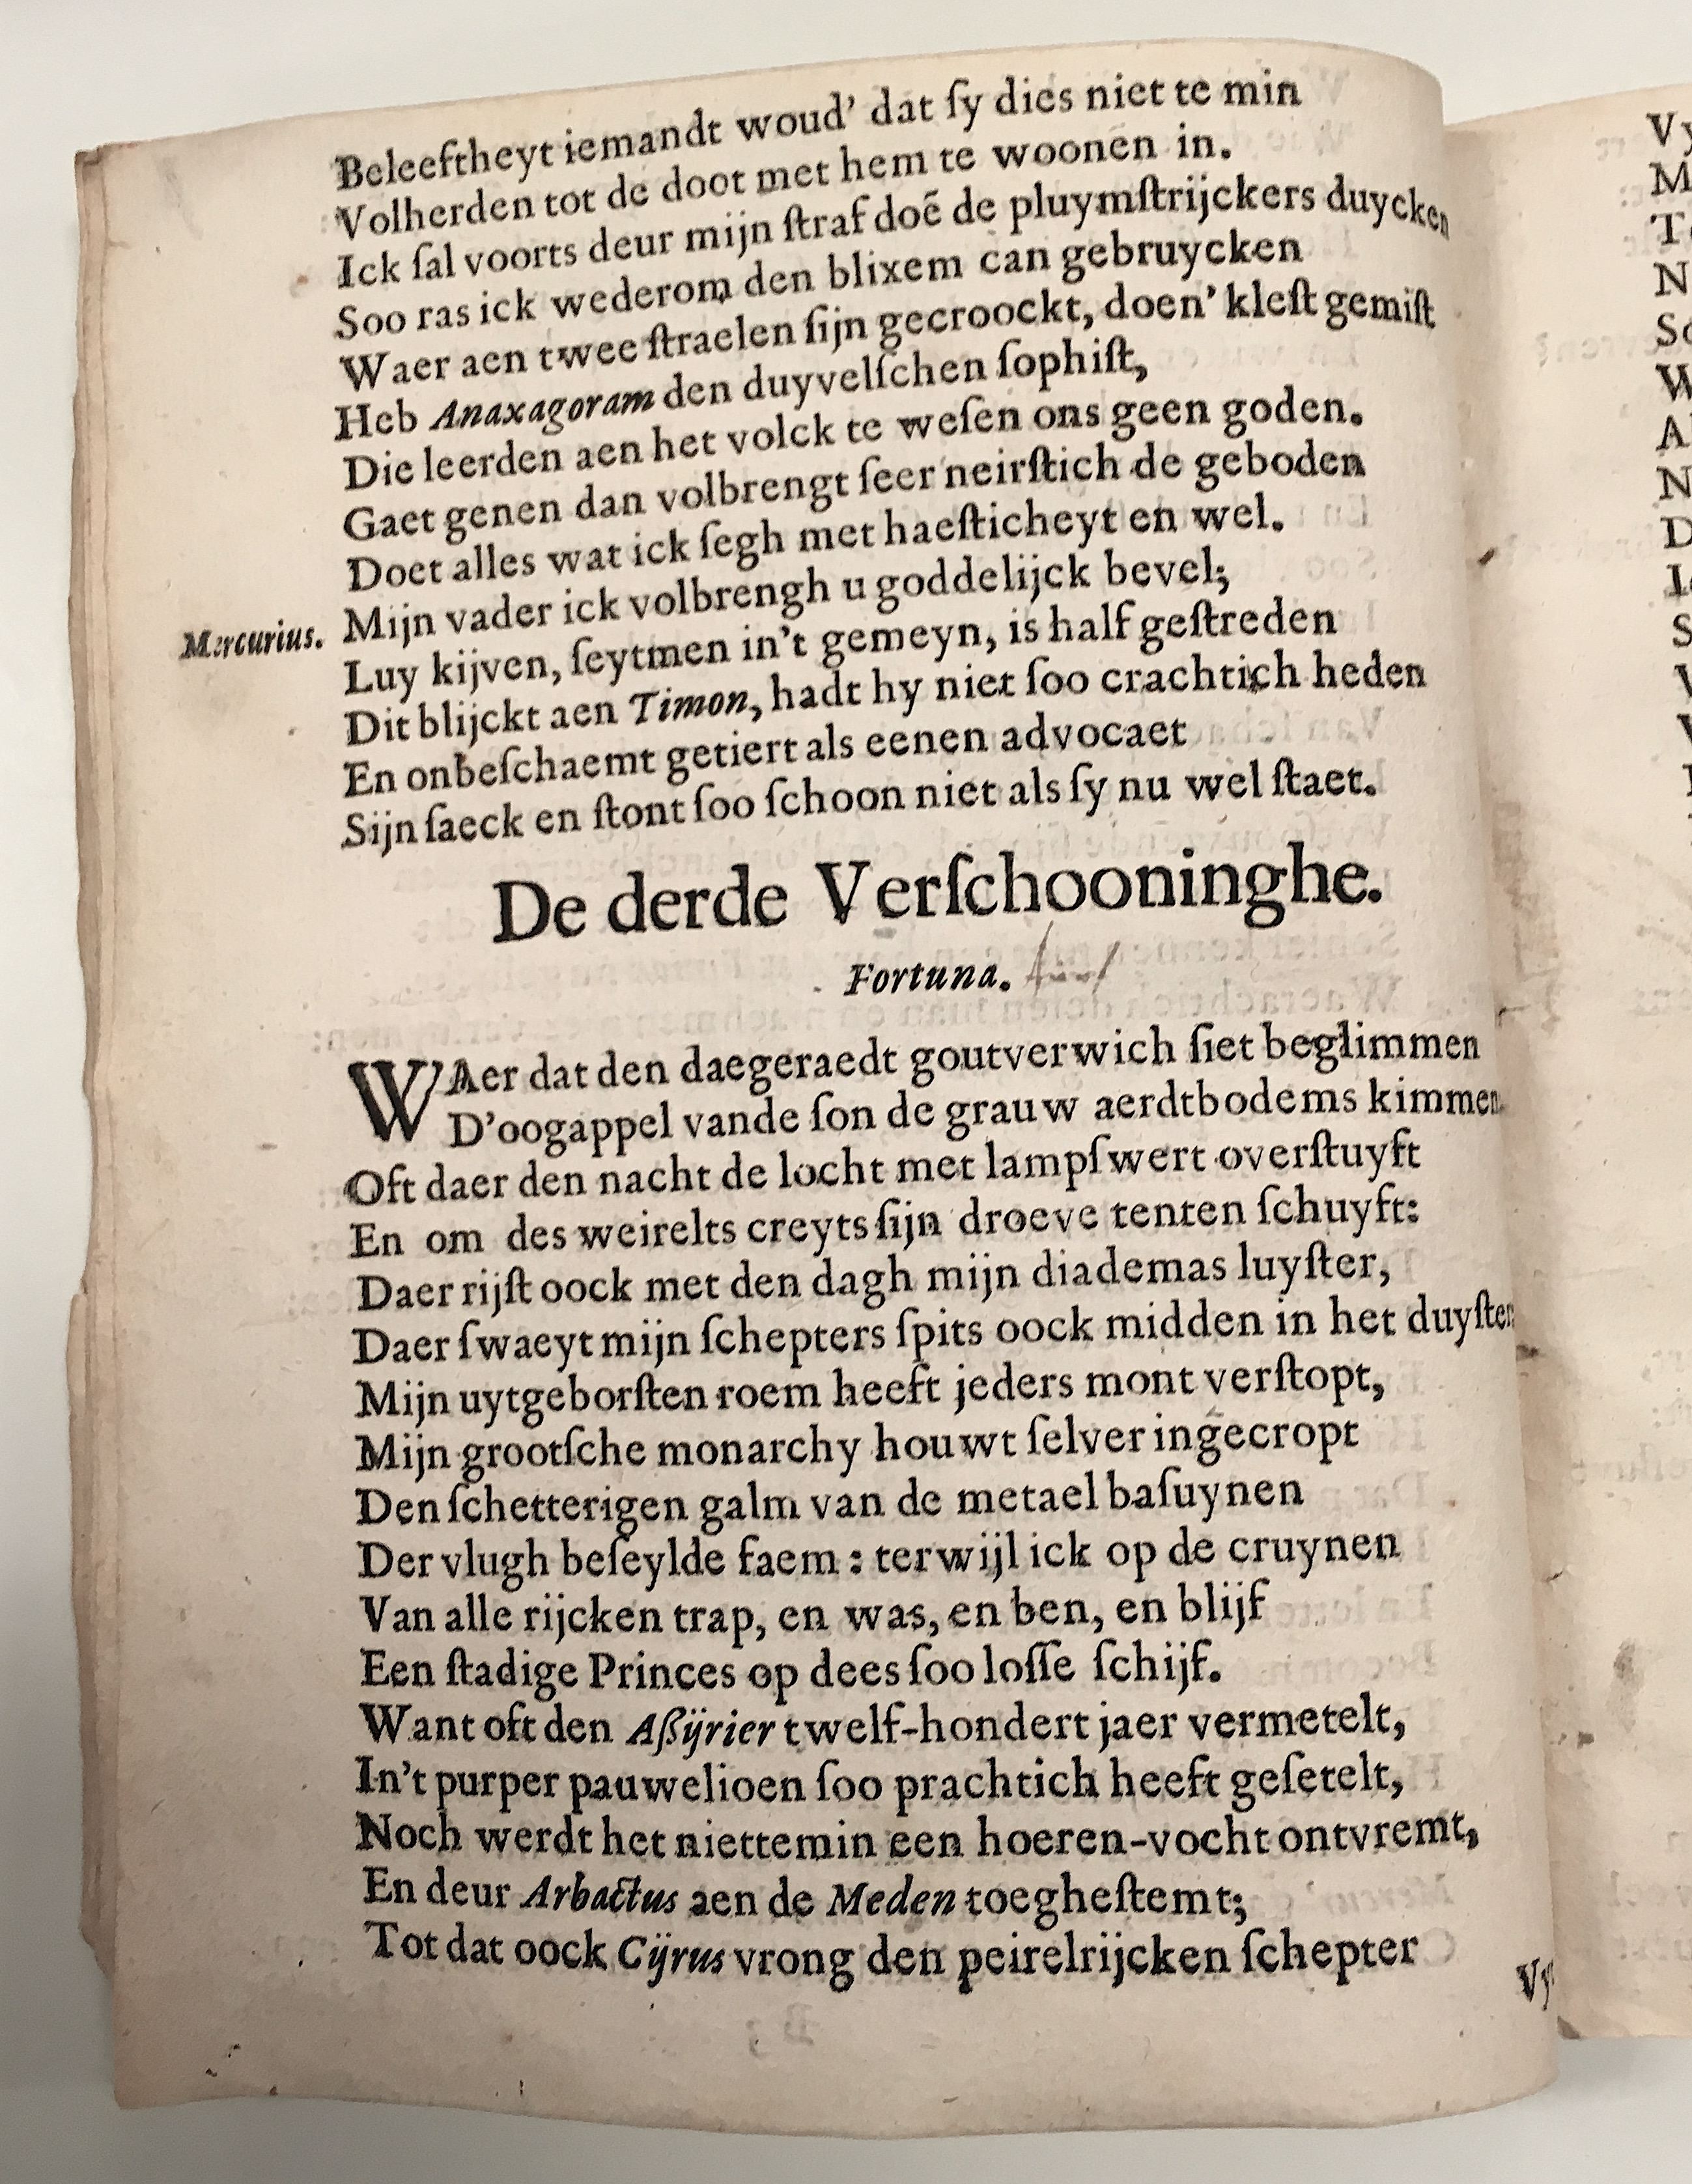 Beleeftheyt iemandt woud' dat ſy dies niet te min
Volherden tot de doot met hem te woonen in.
Ick ſal voorts deur mijn ſtraf doẽ de pluymſtrijckers duycken
Soo ras ick wederom den blixem can gebruycken
Waer aen twee ſtraelen ſijn gecroockt, doen' kleſt gemiſt
Heb Anaxagoram den duyvelſchen ſophiſt,
Die leerden aen het volck te weſen ons geen goden.
Gaet genen dan volbrengt ſeer neirſtich de geboden
Doet alles wat ick ſegh met haeſticheyt en wel.
Mercurius. Mijn vader ick volbrengh u goddelijck bevel;
Luy kijven, ſeytmen in't gemeyn, is half geſtreden
Dit blijckt aen Timon, hadt hy niet ſoo crachtich heden
En onbeſchaemt getiert als eenen advocaet
Sijn ſaeck en ſtont ſoo ſchoon niet als ſy nu wel ſtaet.
De derde Verſchooninghe.
Fortuna.
WAer dat den daegeraedt goutverwich ſiet beglimmen
D'oogappel vande ſon de grauw aerdtbodems kimmen.
Oft daer den nacht de locht met lampſwert overſtuyft
En om des weirelts creyts ſijn droeve tenten ſchuyft:
Daer rijſt oock met den dagh mijn diademas luyſter,
Daer ſwaeyt mijn ſchepters ſpits oock midden in het duyſter
Mijn uytgeborſten roem heeft jeders mont verſtopt,
Mijn grootſche monarchy houwt ſelver ingecropt
Den ſchetterigen galm van de metael baſuynen
Der vlugh beſeylde faem: terwijl ick op de cruynen
Van alle rijcken trap, en was, en ben, en blijf
Een ſtadige Princes op dees ſoo loſſe ſchijf.
Want oft den Aßÿrier twelf-hondert jaer vermetelt,
In't purper pauwelioen ſoo prachtich heeft geſetelt,
Noch werdt het niettemin een hoeren-vocht ontvremt,
En deur Arbactus aen de Meden toegheſtemt;
Tot dat oock Cÿrus vrong den peirelrijcken ſchepter